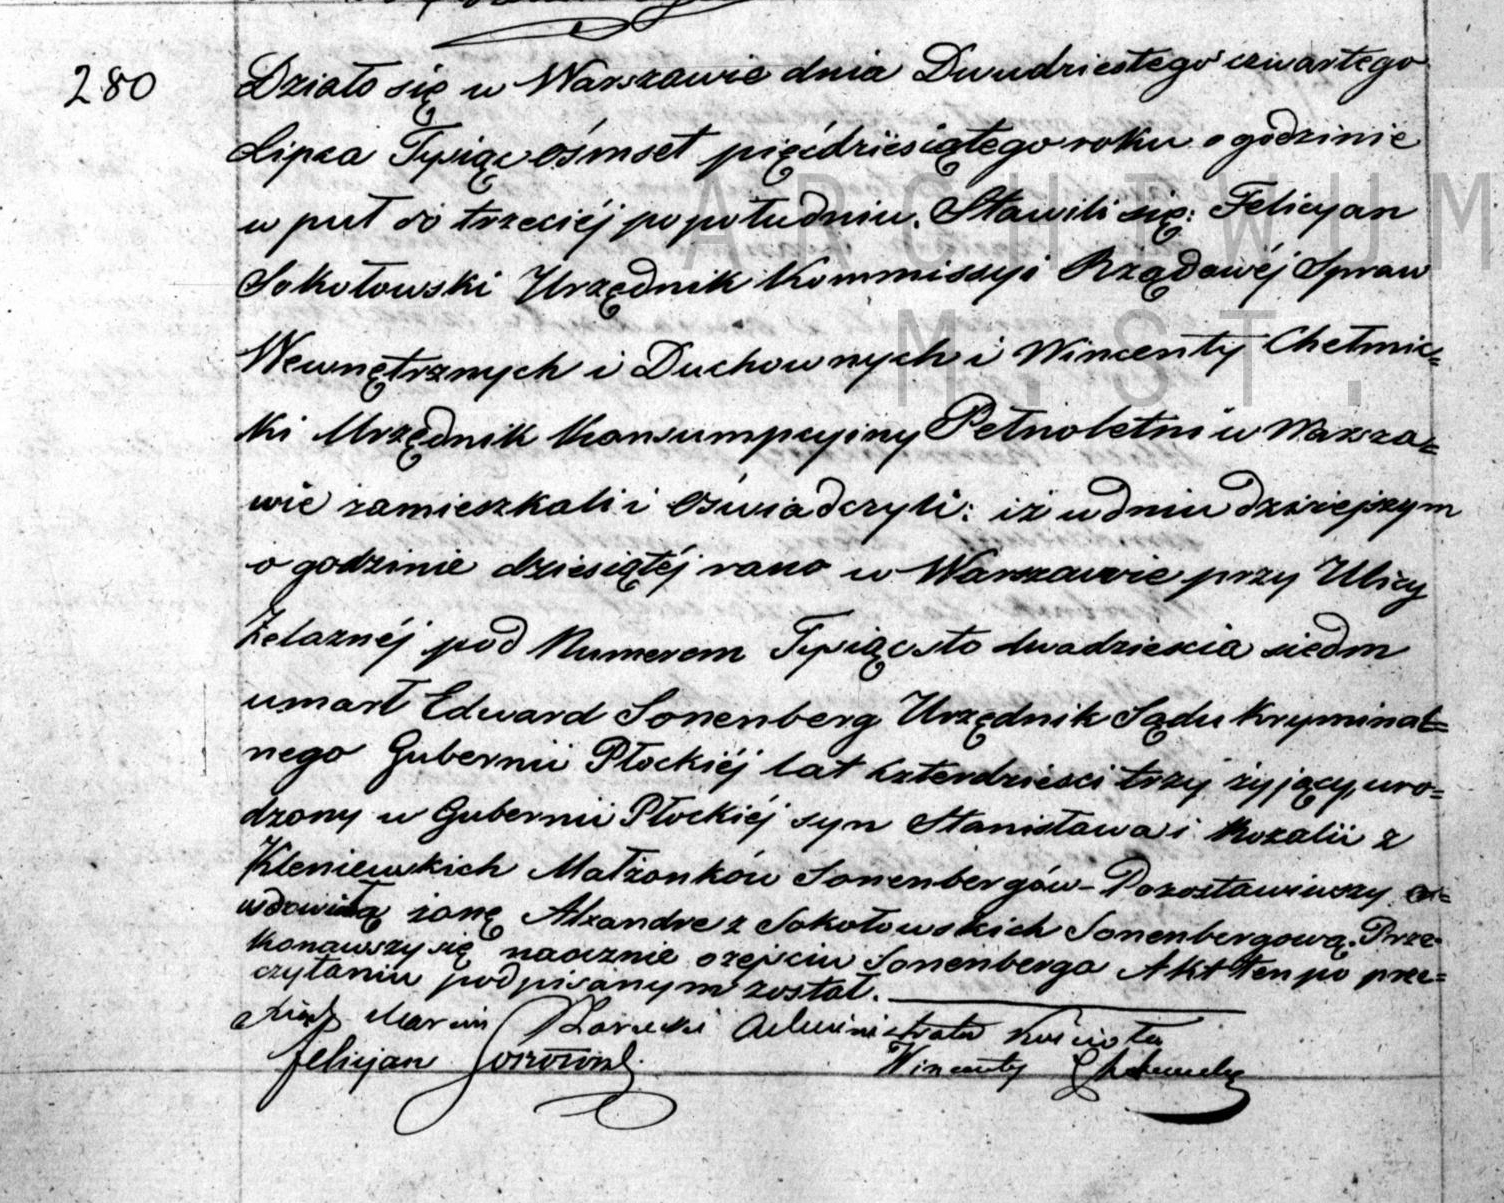 280
Działo się w Warszawie dnia Dwudziestego czwartego
Lipca Tysiąc óśmset pięćdziesiątego roku o godzinie
w puł do trzeciéj popołudniu. Stawili się: Felicyan
Sokołowski Urzędnik Kommissyi Rządowéj Spraw
Wewnętrznych i Duchownych i Wincenty Chełmic=
ki Urzędnik Konsumpcyiny Pełnoletni w Warsza=
wie zamieszkali i oświadczyli: iż w dniu dzisiejszym
o godzinie dziesiątéj rano w Warszawie przy Ulicy
Żelaznéj pod Numerem Tysiąc sto dwadzieścia siedm
umarł Edward Sonenberg Urzędnik Sądu Kryminal=
nego Gubernii Płockiéj lat czterdzieści trzy żyjący, uro=
dzony w Gubernii Płockiéj syn Stanisława i Rozalii z
Kleniewskich Małżonków Sonenbergów – Pozostawiwszy
wdowią żonę Alxandrę z Sokołowskich Sonenbergową. Prze=
konawszy się naocznie o zejściu Sonenberga Akt ten po prze=
czytaniu podpisanym został.
Marcin Administrator Kościoła
Felicjan Sokołowski Wincenty Chełmicki
ARCHIWUM
M. ST.